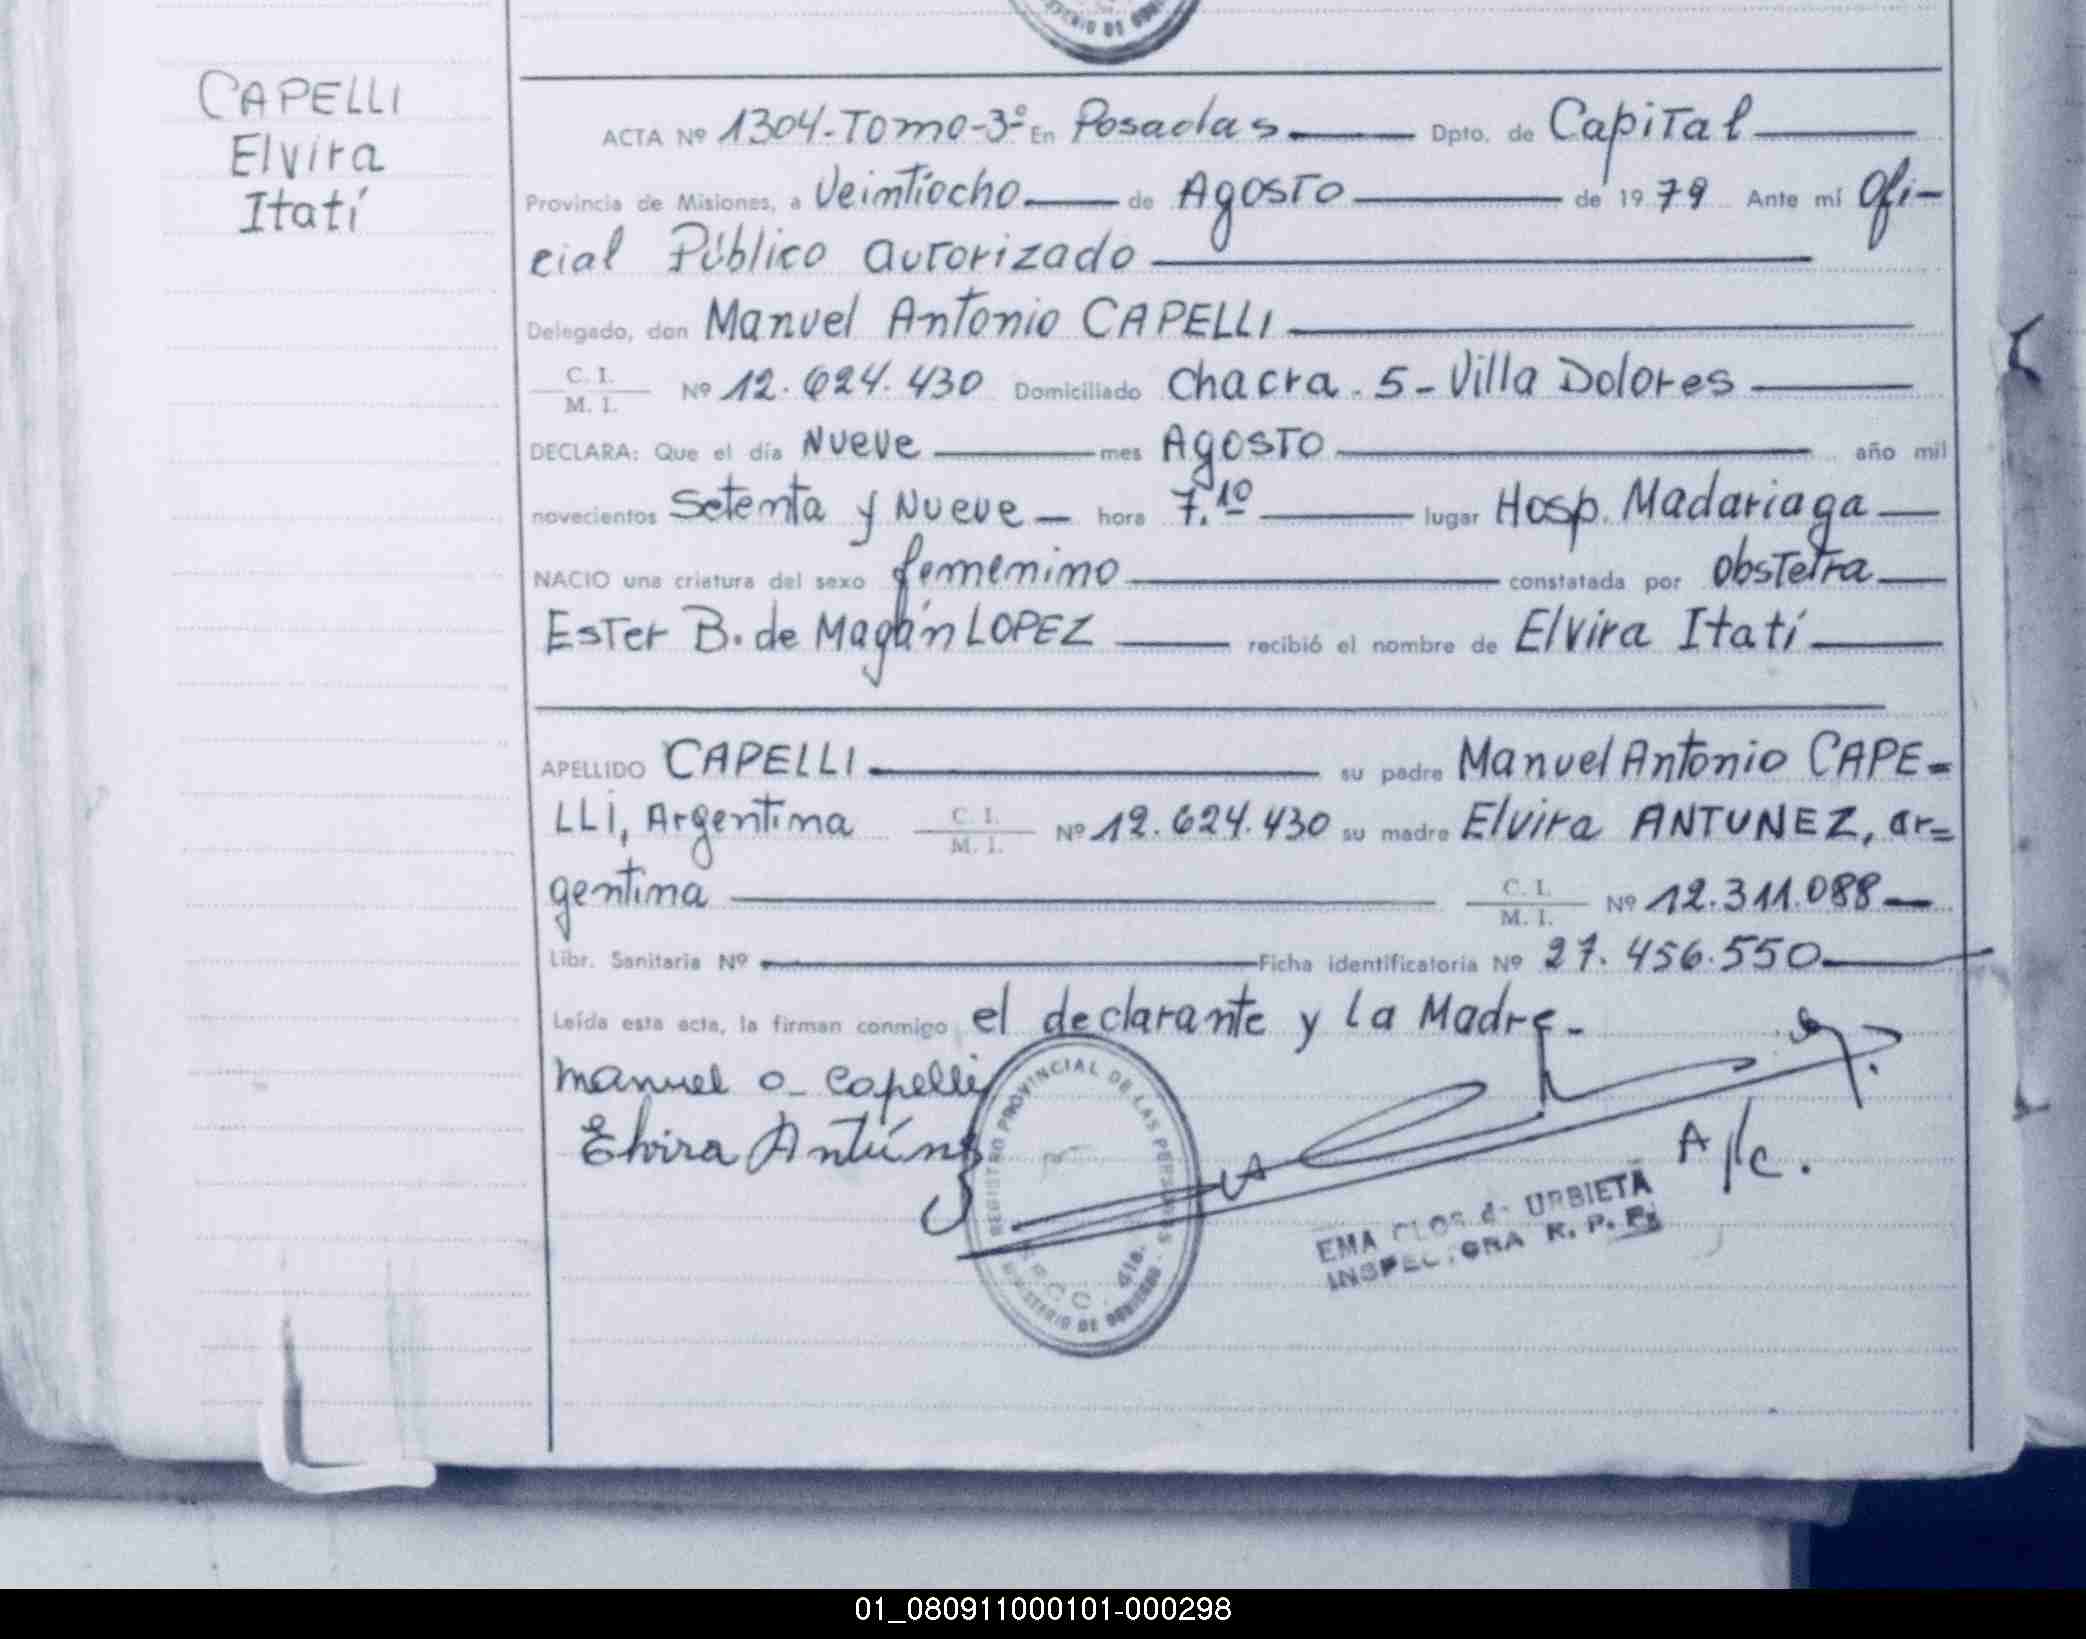 MINISTERIO DE
CAPELLI
Elvira
Itatí
ACTA Nº 1304-Tomo-3º En Posadas Dpto. de Capital
Provincia de Misiones, a Veintiocho de Agosto de 1979 Ante mí Ofi-
cial Público autorizado
Delegado, don Manuel Antonio CAPELLI
C. I.
M. I. Nº 12.624.430 Domiciliado Chacra. 5-Villa Dolores
DECLARA: Que el día Nueve mes Agosto año mil
novecientos Setenta y Nueve hora 7.10 lugar Hosp. Madariaga
NACIO una criatura del sexo femenino constatada por obstetra
Ester B. de Magán LOPEZ recibió el nombre de Elvira Itatí
APELLIDO CAPELLI su padre Manuel Antonio CAPE=
LLI, Argentina C. I. M. I. Nº 12.624.430 su madre Elvira ANTUNEZ, ar=
gentina C. I. M. I. Nº 12.311.088
Libr. Sanitaria Nº Ficha identificatoria Nº 27.456.550
Leída esta acta, la firman conmigo el declarante y la Madre.-
manuel a- Capelli
Elvira Antúnez
REGISTRO PROVINCIAL DE LAS PERSONAS
MINISTERIO DE GOBIERNO
A/c.
EMA CLOS de URBIETA
INSPECTORA R. P. P.
01_080911000101-000298